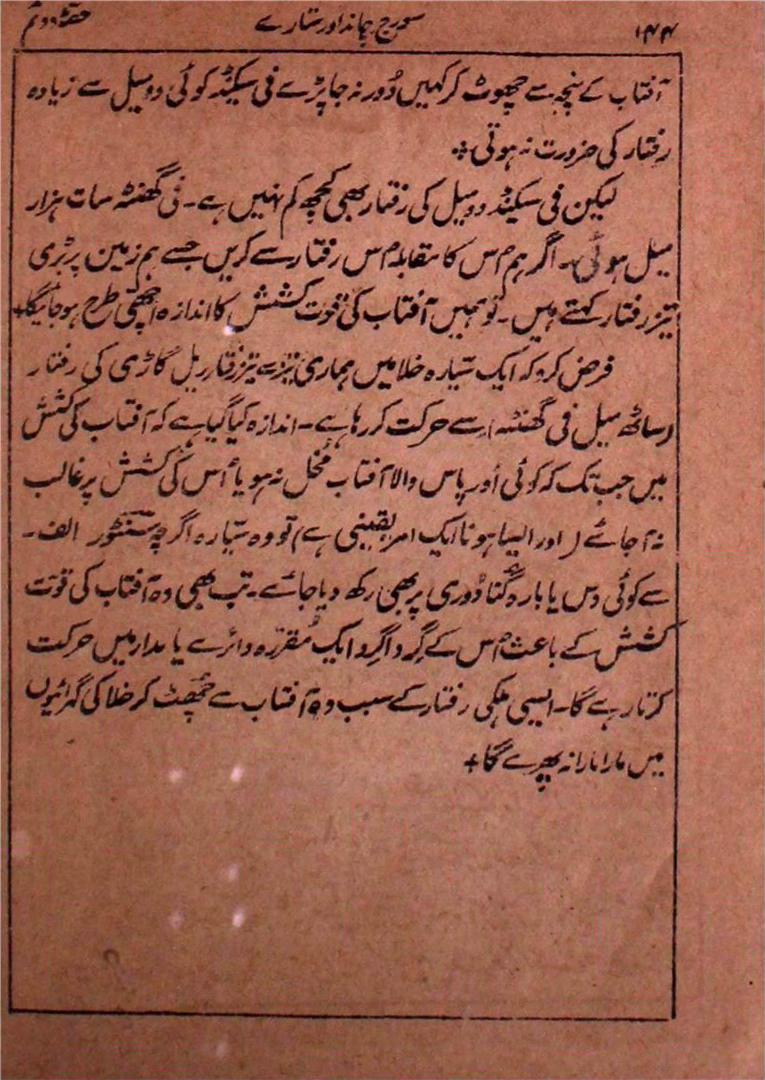 ۱۴۴ سورج چاند اور ستارے حصّہ دوئم
آفتاب کے پنجہ سے چھوٹ کر کہیں دُور نہ جا پڑے فی سیکنڈ کوئی دو میل سے زیادہ
رفتار کی ضرورت نہ ہوتی ٭
لیکن فی سیکنڈ دو میل کی رفتار بھی کچھ کم نہیں ہے۔ فی گھنٹہ سات ہزار
میل ہوئی۔ اگر ہم اس کا مقابلہ اس رفتار سے کریں جسے ہم زمین پر بڑی
تیز رفتار کہتے ہیں۔ تو ہمیں آفتاب کی قوت کشش کا اندازہ اچھی طرح ہو جائیگا+
فرض کرو کہ ایک سیّارہ خلا میں ہماری تیز سے تیز رفتار ریل گاڑی کی رفتار
(ساٹھ میل فی گھنٹہ) سے حرکت کر رہا ہے۔ اندازہ کیا گیا ہے کہ آفتاب کی کشش
میں جب تک کہ کوئی اَور پاس والا آفتاب مُخل نہ ہو یا اُس کی کشش پر غالب
نہ آ جائے (اور ایسا ہونا ایک امر یقینی ہے) تو وہ سیّارہ اگرچہ سنٹور الف۔
سے کوئی دس یا بارہ گُنا دُوری پر بھی رکھ دیا جائے۔ تب بھی وہ آفتاب کی قوّت
کشش کے باعث اس کے گرداگرد ایک مُقررہ دائرے یا مدار میں حرکت
کرتا رہے گا۔ ایسی ہلکی رفتار کے سبب وہ آفتاب سے چُھٹ کر خلا کی گہرائیوں
میں مارا مارا نہ پھرے گا+